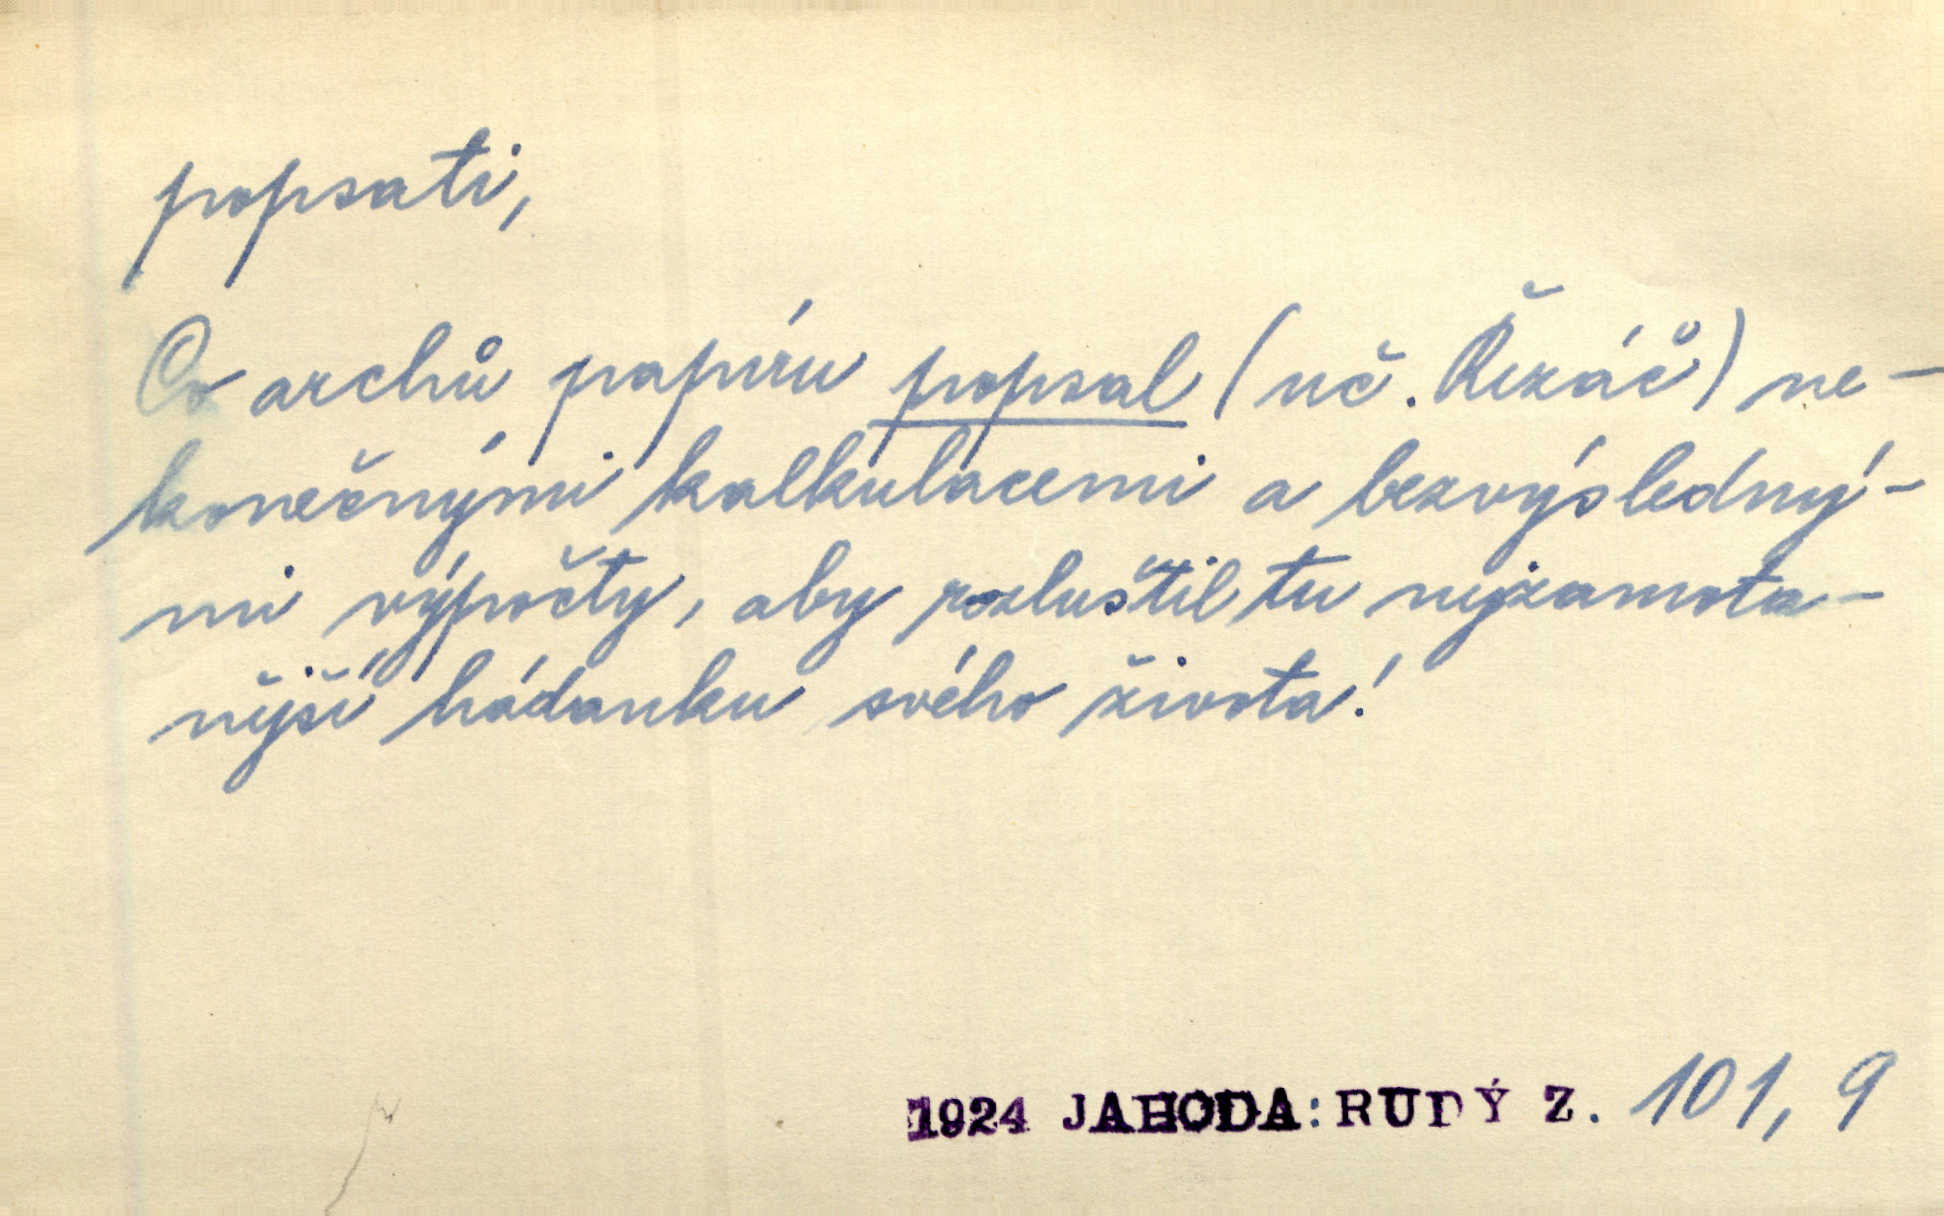 popsati,
Co archů papíru popsal (uč. Řezáč) ne-
konečnými kalkulacemi a bezvýsledný-
mi výpočty, aby rozluštil tu nejzamota-
nější hádanku svého života!
1924 JAHODA: RUDÝ Z. 101, 9